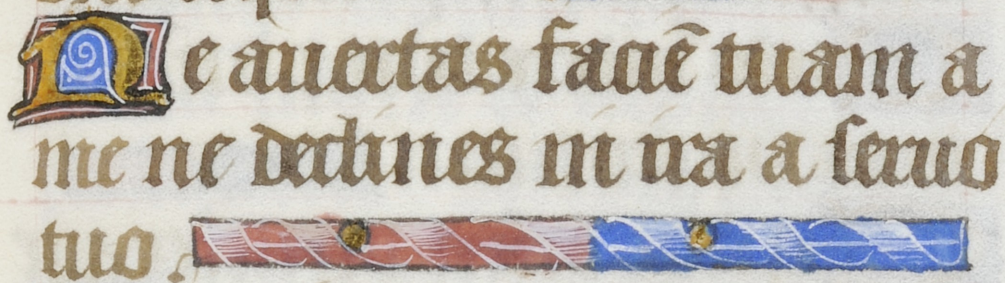 Ne auertas faciē tuam a
me ne declines in ira a seruo
tuo.